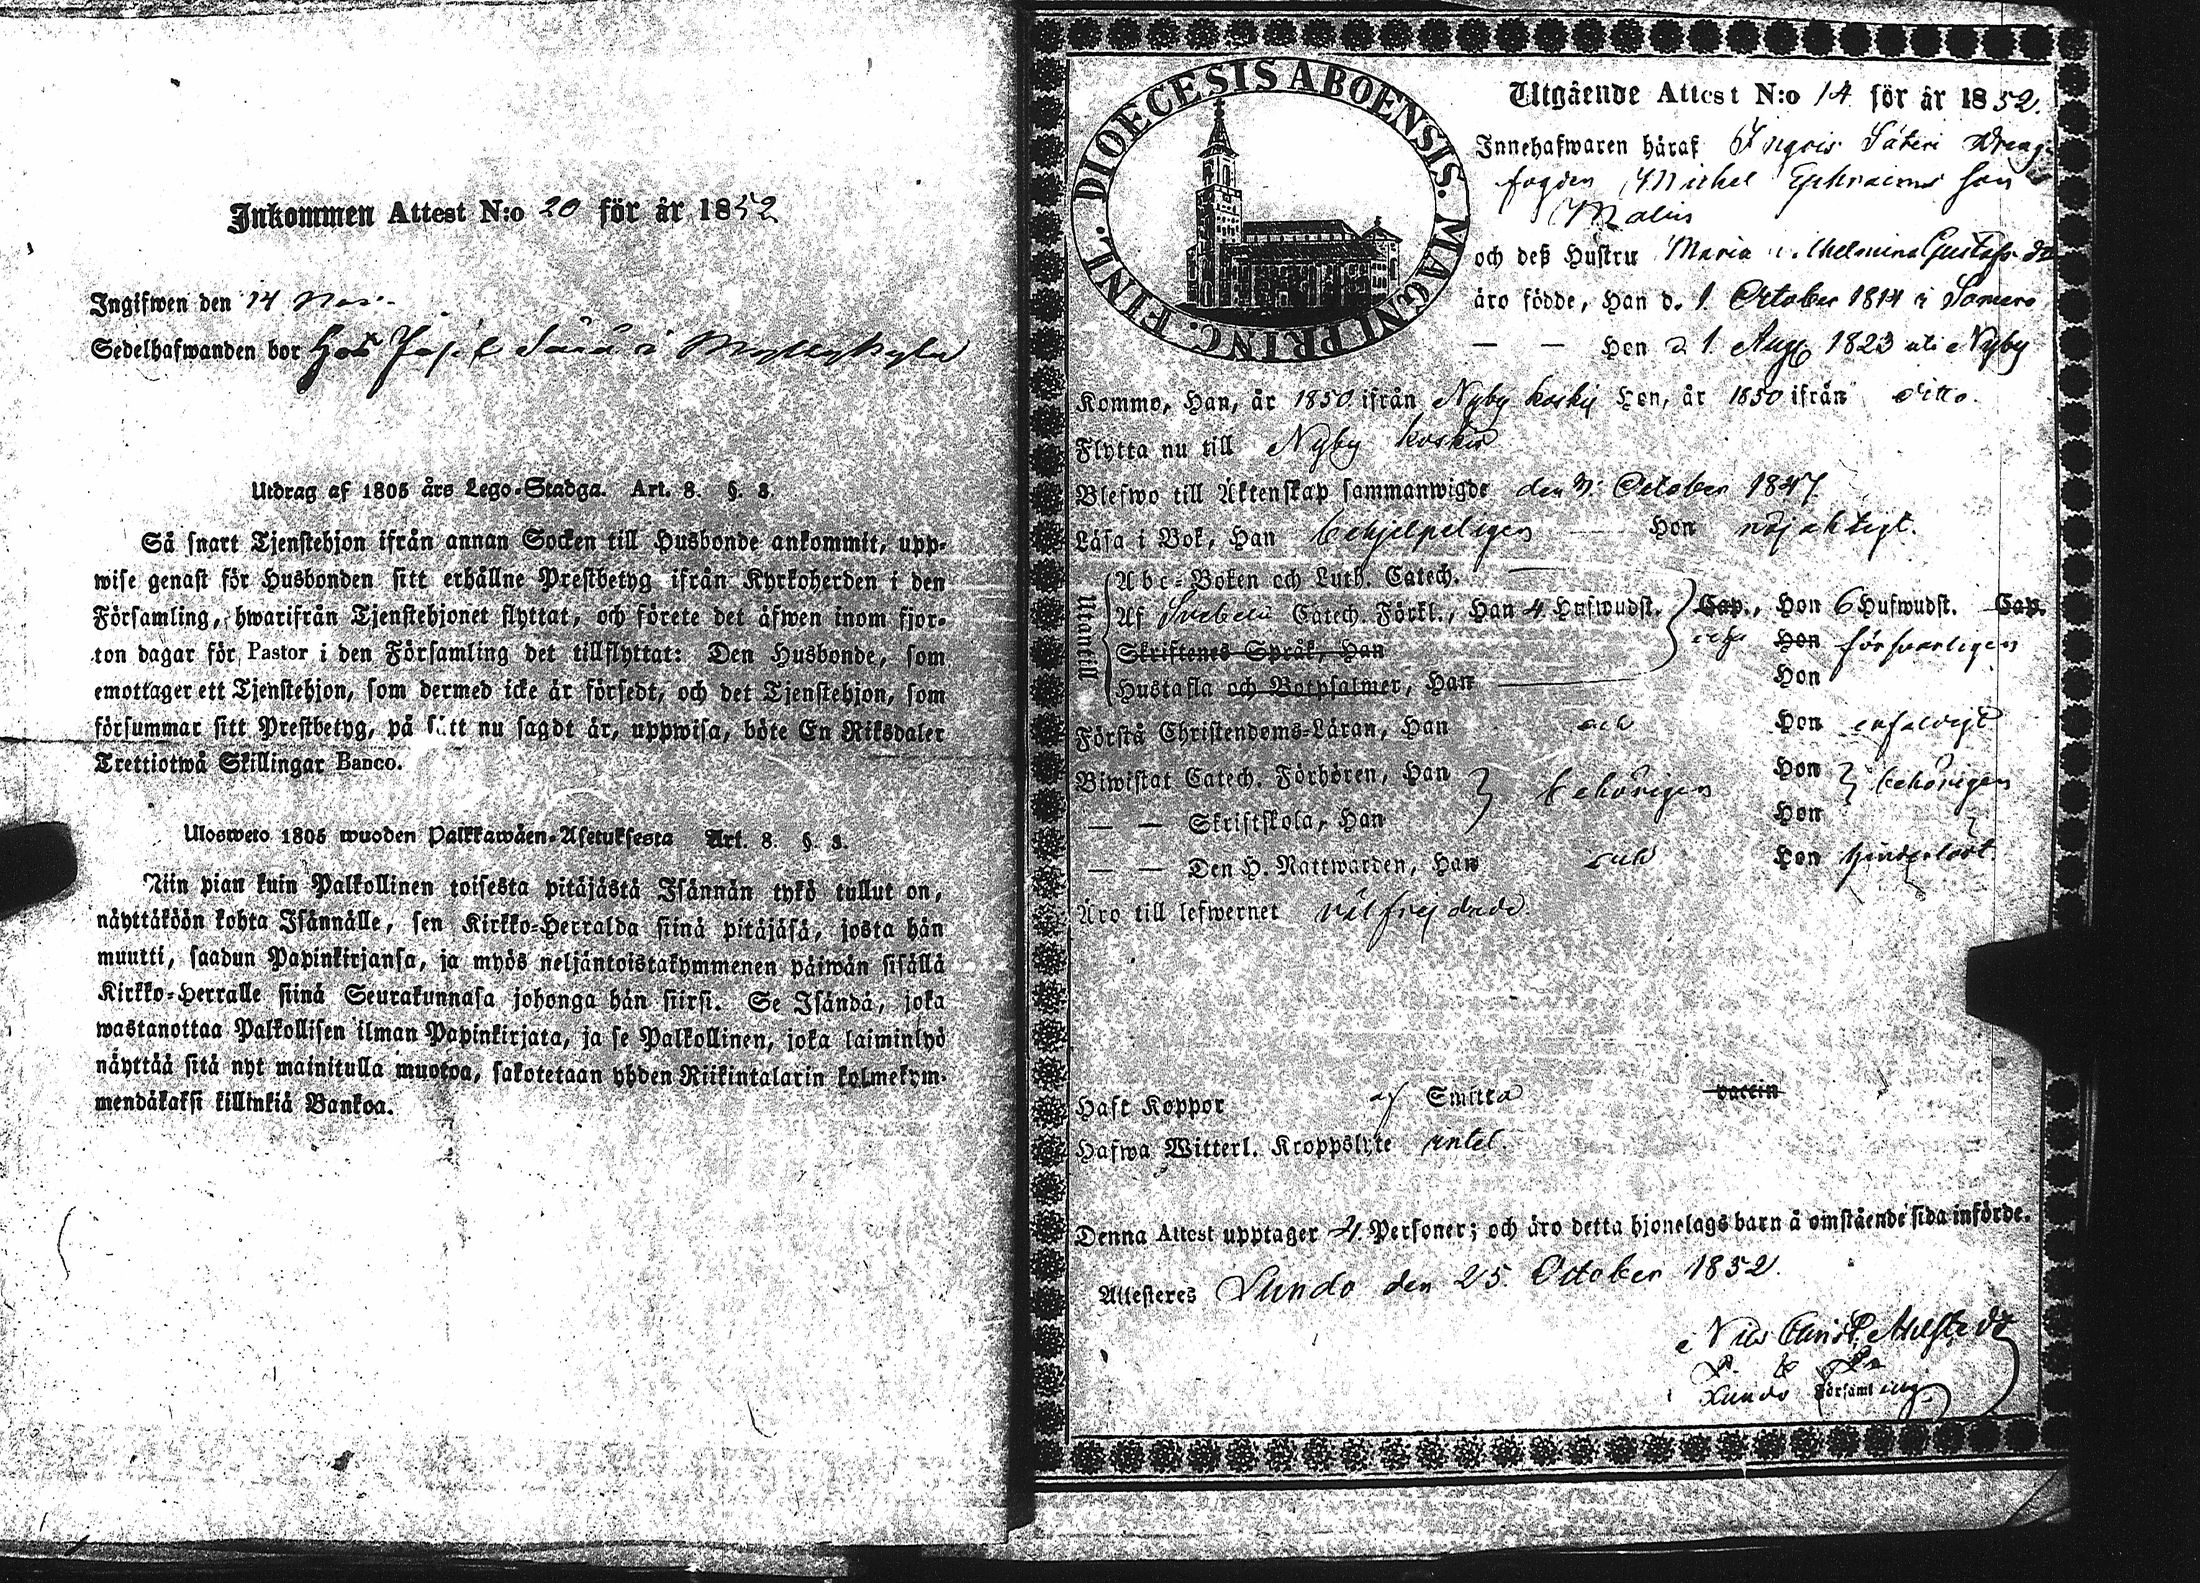 Inkommen Attest N:o 20 för år 1852
Ingifwen den 14 Nov.
Sedelhafwanden bor Hos i Myllykylä
Utdrag af 1805 års Lego-Stadga. Art. 8. §. 3.
Så snart Tjenstehjon ifrån annan Socken till Husbonde ankommit, upp-
wise genast för Husbonden sitt erhållne Prestbetyg ifrån Kyrkoherden i den
Församling, hwarifrån Tjenstehjonet flyttat, och förete det äfwen inom fjor-
ton dagar för Pastor i den Församling det tillflyttat: Den Husbonde, som
emottager ett Tjenstehjon, som dermed icke är försedt, och det Tjenstehjon, som
försummar sitt Prestbetyg, på sätt nu sagdt är, uppwisa, böte En Riksdaler
Trettiotwå Skillingar Banco.
Ulosweto 1805 wuoden Palkkawäen-Asetuksesta Art. 8. §. 3.
Niin pian kuin Palkollinen toisesta pitäjästä Isännän tykö tullut on,
näyttäköön kohta Isännälle, sen Kirkko-Herralda siinä pitäjäsä, josta hän
muutti, saadun Papinkirjansa, ja myös neljäntoistakymmenen päiwän sisällä
Kirkko-Herralle siinä Seurakunnasa johonga hän siirsi. Se Isändä, joka
wastanottaa Palkollisen ilman Papinkirjata, ja se Palkollinen, joka laiminlyö
näyttää sitä nyt mainitulla muotoa, sakotetaan yhden Riikintalarin kolmekym-
mendäkaksi killinkiä Bankoa.
DIOECESIS ABOENSIS. MAGNI PRINC. FINL.
Utgående Attest N:o 14 för år 1852.
Innehafwaren häraf Säteri Dreng-
fogden Michel Ephraims son
Malin
och deß Hustru Maria Vilhelmina Gustafs dr
äro födde, Han d. 1. October 1814 i Somero
— — Hon d. 1. Aug 1823 uti Nyby
Kommo, Han, år 1850 ifrån Nyby koskis Hon, år 1850 ifrån ditto.
Flytta nu till Nyby koskis
Blefwo till Äktenskap sammanwigde den October 1847.
Läsa i Bok, Han behjelpeligen — Hon nöjaktigt.
Utantill
Abc-Boken och Luth. Catech.
Af Svebelii Catech. Förkl., Han 4 Hufwudst. Cap., Hon 6 Hufwudst. Cap.
Skriftenes Språk, Han Hon försvarligen
Hustafla och Botpsalmer, Han Hon
Förstå Christendoms-Läran, Han och Hon enfaldigt
Biwistat Catech. Förhören, Han behörigen Hon behörigen
— — Skriftskola, Han Hon
— — Den H. Nattwarden, Han och Hon hinderlöst
Äro till lefwernet välfrejdade.
Haft Koppor af Smitta vaccin
Hafwa Witterl. Kroppslyte intet.
Denna Attest upptager 4. Personer; och äro detta hjonelags barn å omstående sida införde.
Attesteres Lundo den 25. October 1852.
Nils Christ. Ahlstedt
i Lundo Församling.